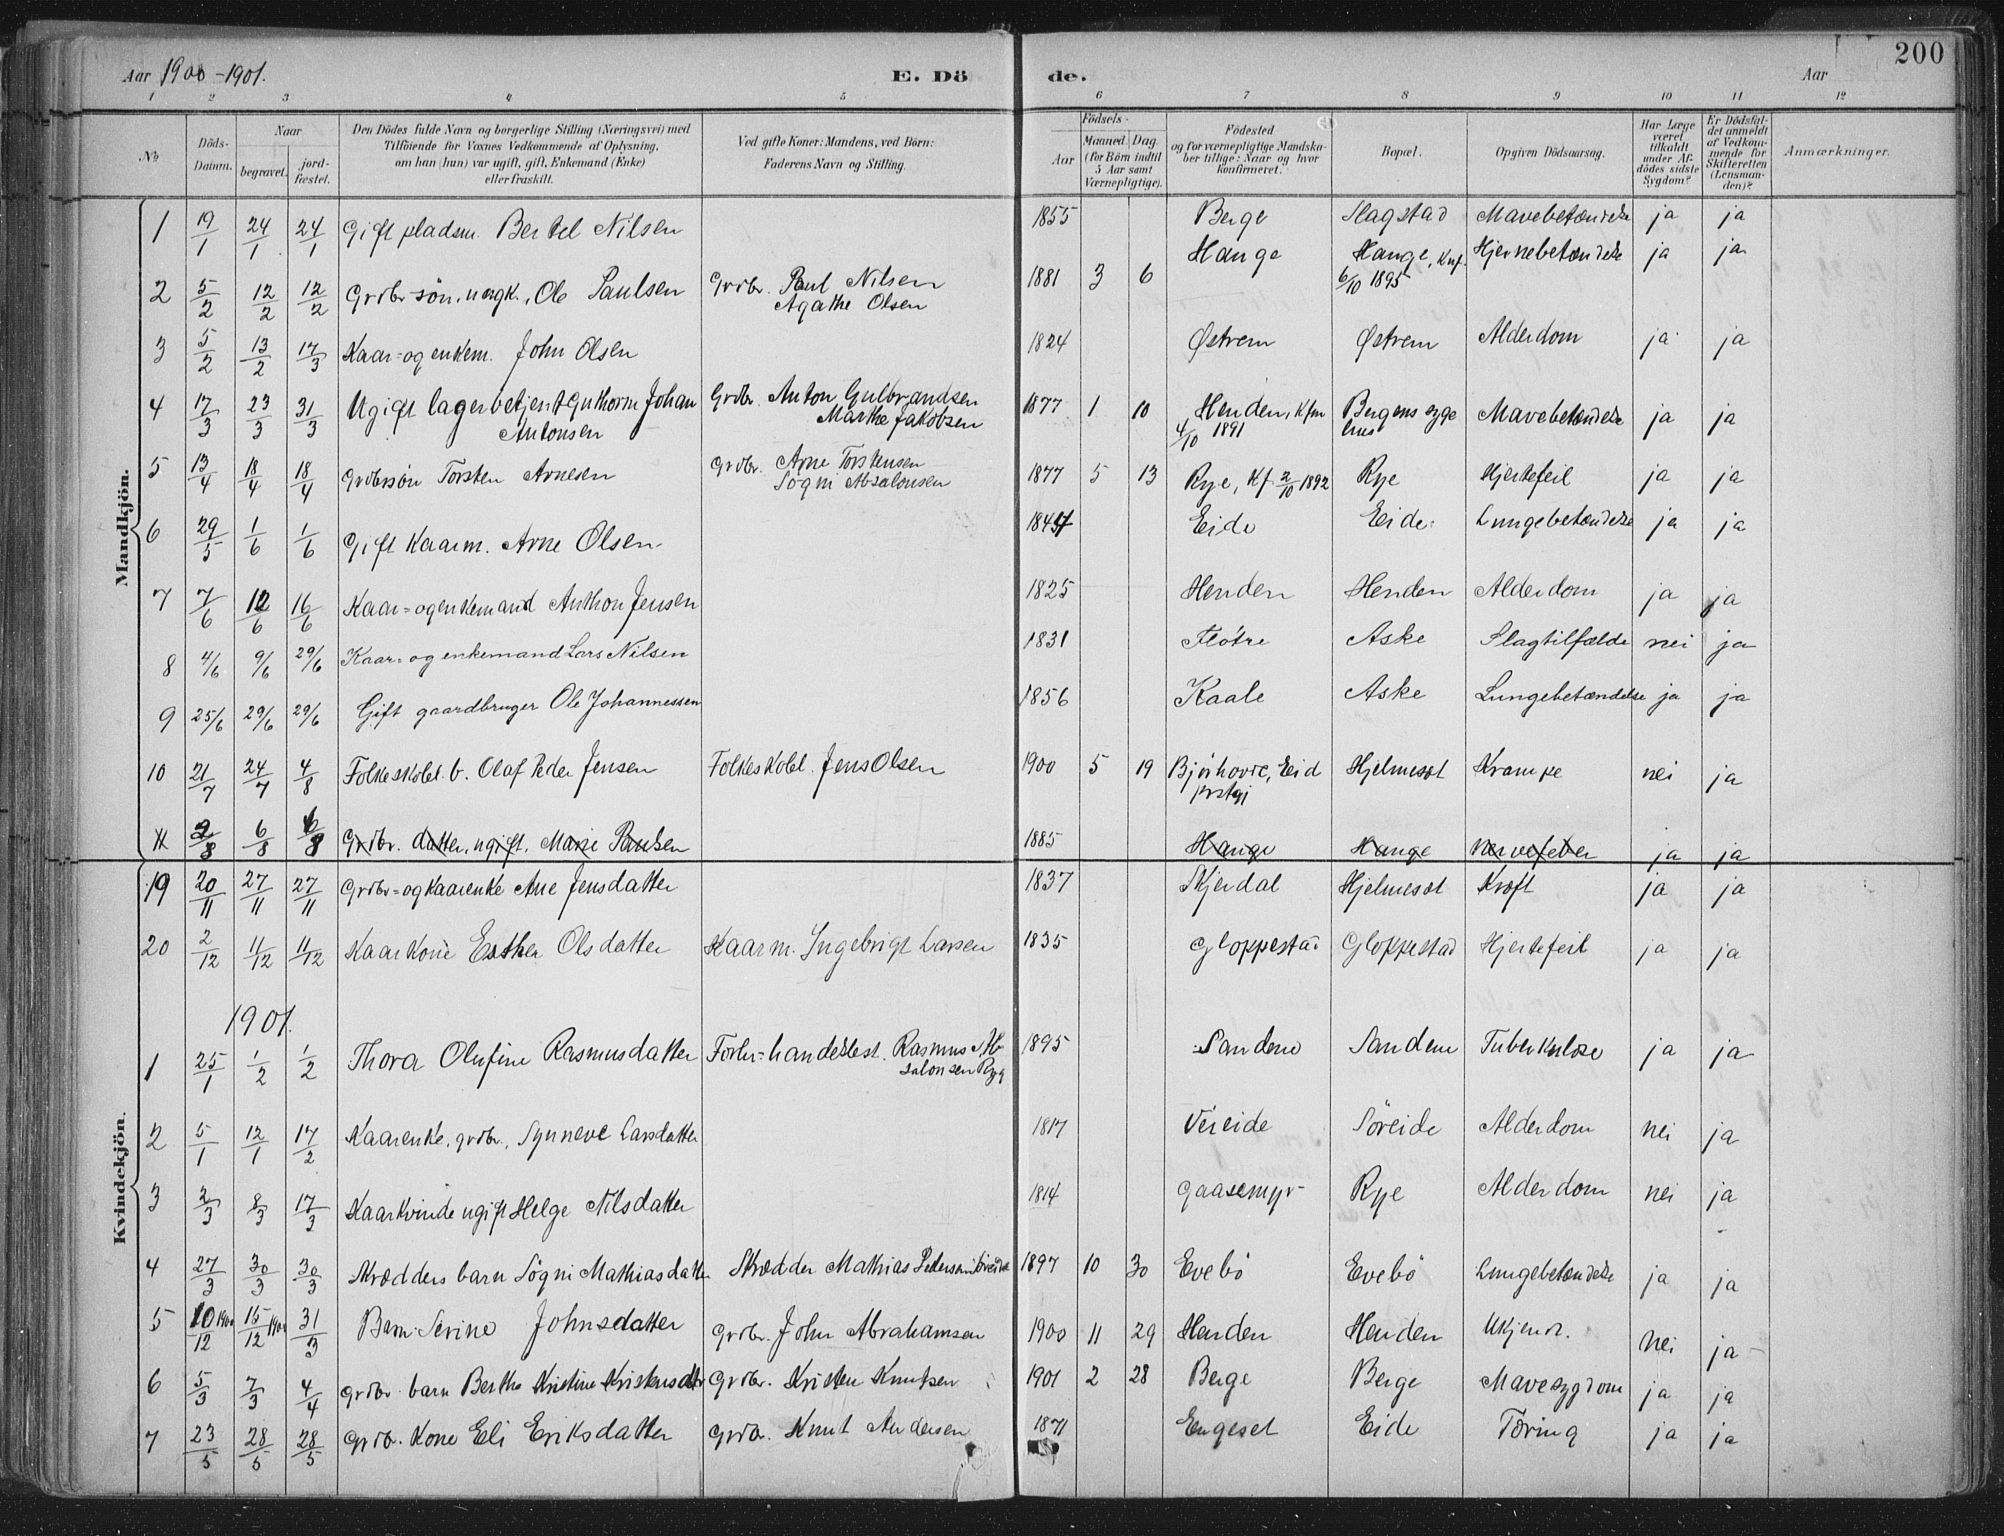 200
Aar 1900-1901.
E. Dö
de.
Aar
1 2 3 4 5 6 7 8 9 10 11 12
No
Döds-Datum.
Naar
begravet.
jord-fæstet.
Den Dödes fulde Navn og borgerlige Stilling (Næringsvei) med
Tilföiende for Voxnes Vedkommende af Oplysning,
om han (hun) var ugift, gift, Enkemand (Enke)
eller fraskilt.
Ved gifte Koner: Mandens, ved Börn:
Faderens Navn og Stilling.
Födsels-
Aar
Maaned. Dag.
(for Börn indtil
5 Aar samt
Værnepligtige).
Födested
og for værnepligtige Mandska-
ber tillige: Naar og hvor
konfirmeret.
Bopæl.
Opgiven Dödsaarsag.
Har Læge
været
tilkaldt
under Af-
dödes sidste
Sygdom?
Er Dödsfal-
det anmeldt
af Vedkom-
mende for
Skifteretten
(Lensman-
den)?
Anmærkninger.
Mandkjön.
1 19/1 24/1 24/1 Gift pladsm. Bertel Nilsen 1855 Berge Slagstad Mavebetændelse ja ja
2 5/2 12/2 12/2 Grdbr søn, Ole Paulsen Grdbr. Paul Nilsen 1881 3 6 Hauge Hauge, Knf. Hjernebetændelse ja ja
Agathe Olsen 6/10 1895
3 5/2 13/2 17/3 Kaar- og enkem. John Olsen 1824 Østrem Østrem Alderdom ja ja
4 17/3 23/3 31/3 Ugift lagerbetjent Guthorm Johan Grdbr. Anton Gulbrandsen 1877 1 10 Henden, Kfm Bergens syge Mavebetændelse ja ja
Antonsen Marthe Jakobsen 4/10 1891 hus
5 13/4 18/4 18/4 Grdbrsøn Torsten Arnesen Grdbr. Arne Torstensen 1877 5 13 Rye, Kf. 2/10 1892 Rye Hjertefeil ja ja
Søgni Absalonsen
6 29/5 1/6 1/6 Gift Kaarm. Arne Olsen Eide Eide Lungebetændelse ja ja
7 7/6 12/6 16/6 Kaar- og enkemand Anthon Jensen 1825 Henden Henden Alderdom ja ja
8 4/6 9/6 29/6 Kaar- og enkemand Lars Nilsen 1831 Flötre Aske Slagtilfælde nei ja
9 25/6 29/6 29/6 Gift gaardbruger Ole Johannessen 1856 Kaale Aske Lungebetændelse ja ja
10 21/7 24/7 4/8 Folkeskolel. b. Olaf Peder Jensen Folkeskolel. Jens Olsen 1900 5 19 Bjørhovde, Eid Hjelmeset Krampe nei ja
prstgj
11 2/8 6/8 6/8 Grdbr. datter, ugift, Marie Paulsen 1885 Hauge Hauge Nervefeber ja ja
Kvindekjön.
19 20/11 27/11 27/11 Grdbr- og Kaarenke Ane Jensdatter 1837 Skjerdal Hjelmeset Kræft ja ja
20 2/12 11/12 11/12 Kaarkone Esther Olsdatter Kaarm. Ingebrigt Larsen 1835 Gloppestad Gloppestad Hjertefeil ja ja
1901.
1 25/1 1/2 1/2 Thora Olufine Rasmusdatter Forhv-handelsbest. Rasmus Ab- 1895 Sandene Sandene Tuberkulose ja ja
salonsen Ryg
2 5/1 12/1 17/2 Kaarenke, grdbr. Synneve Larsdatter 1817 Véreide Söreide Alderdom nei ja
3 2/3 8/3 17/3 Kaarkvinde ugift Helge Nilsdatter 1814 Gaasemyr Rye Alderdom nei ja
4 27/3 30/3 30/3 Skrædders barn Søgni Mathiasdatter Skrædder Mathias Pedersen 1897 10 30 Evebö Evebö Lungebetændelse ja ja
5 10/12 1900 15/12 1900 31/3 Barn Serine Johnsdatter Grdbr. John Abrahamsen 1900 11 29 Henden Henden Ukjendt. nei ja
6 5/3 7/3 4/4 Grdbr barn Berthe Kristine Kristensdtr Grdbr. Kristen Knutsen 1901 2 28 Berge Berge Mavesygdom ja ja
7 23/5 28/5 28/5 Grdbr. Kone Eli Eriksdatter Grdbr. Knut Andersen 1871 Engeset Eide Tæring ja ja